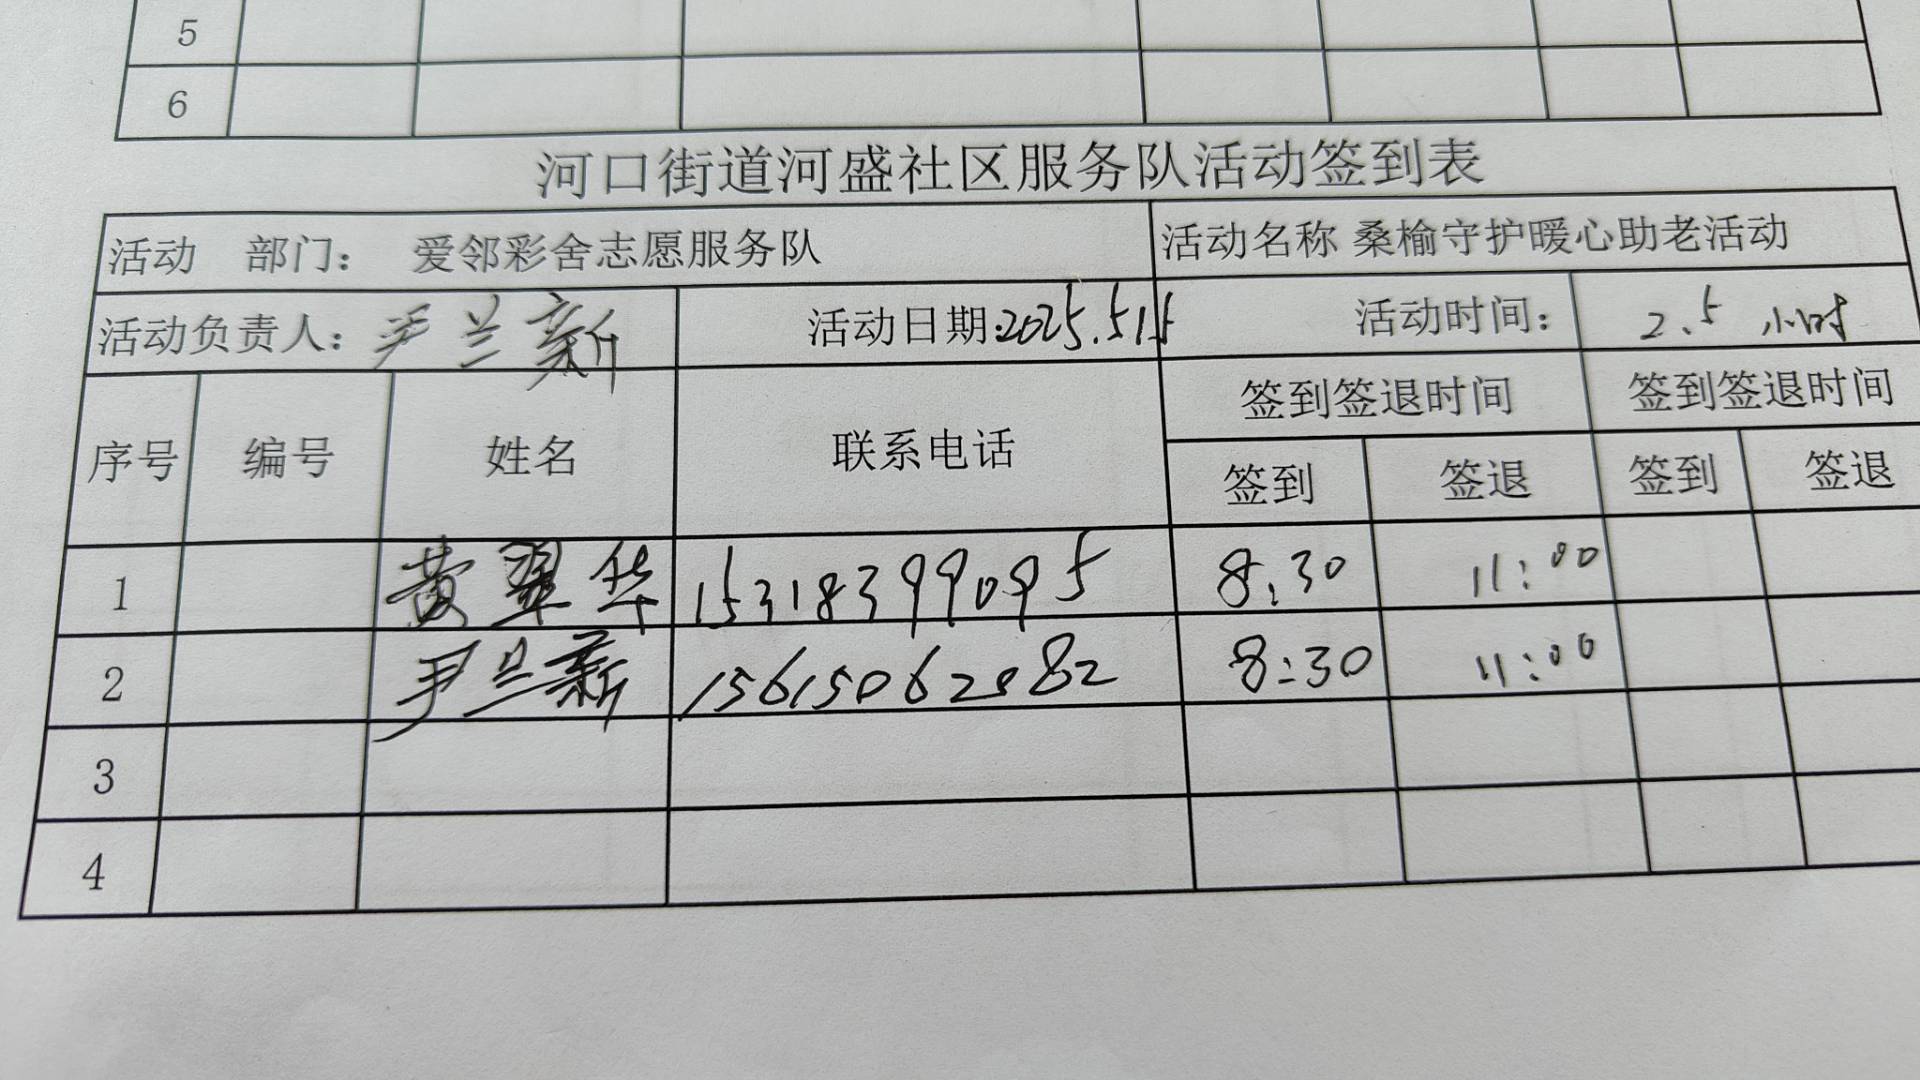 5
6
河口街道河盛社区服务队活动签到表
活动 部门： 爱邻彩舍志愿服务队 活动名称 桑榆守护暖心助老活动
活动负责人：尹兰新 活动日期:2025.5.15 活动时间： 2.5 小时
序号 编号 姓名 联系电话 签到签退时间 签到签退时间
签到 签退 签到 签退
1 黄翠华 15318399095 8:30 11:00
2 尹兰新 15615062082 8:30 11:00
3
4